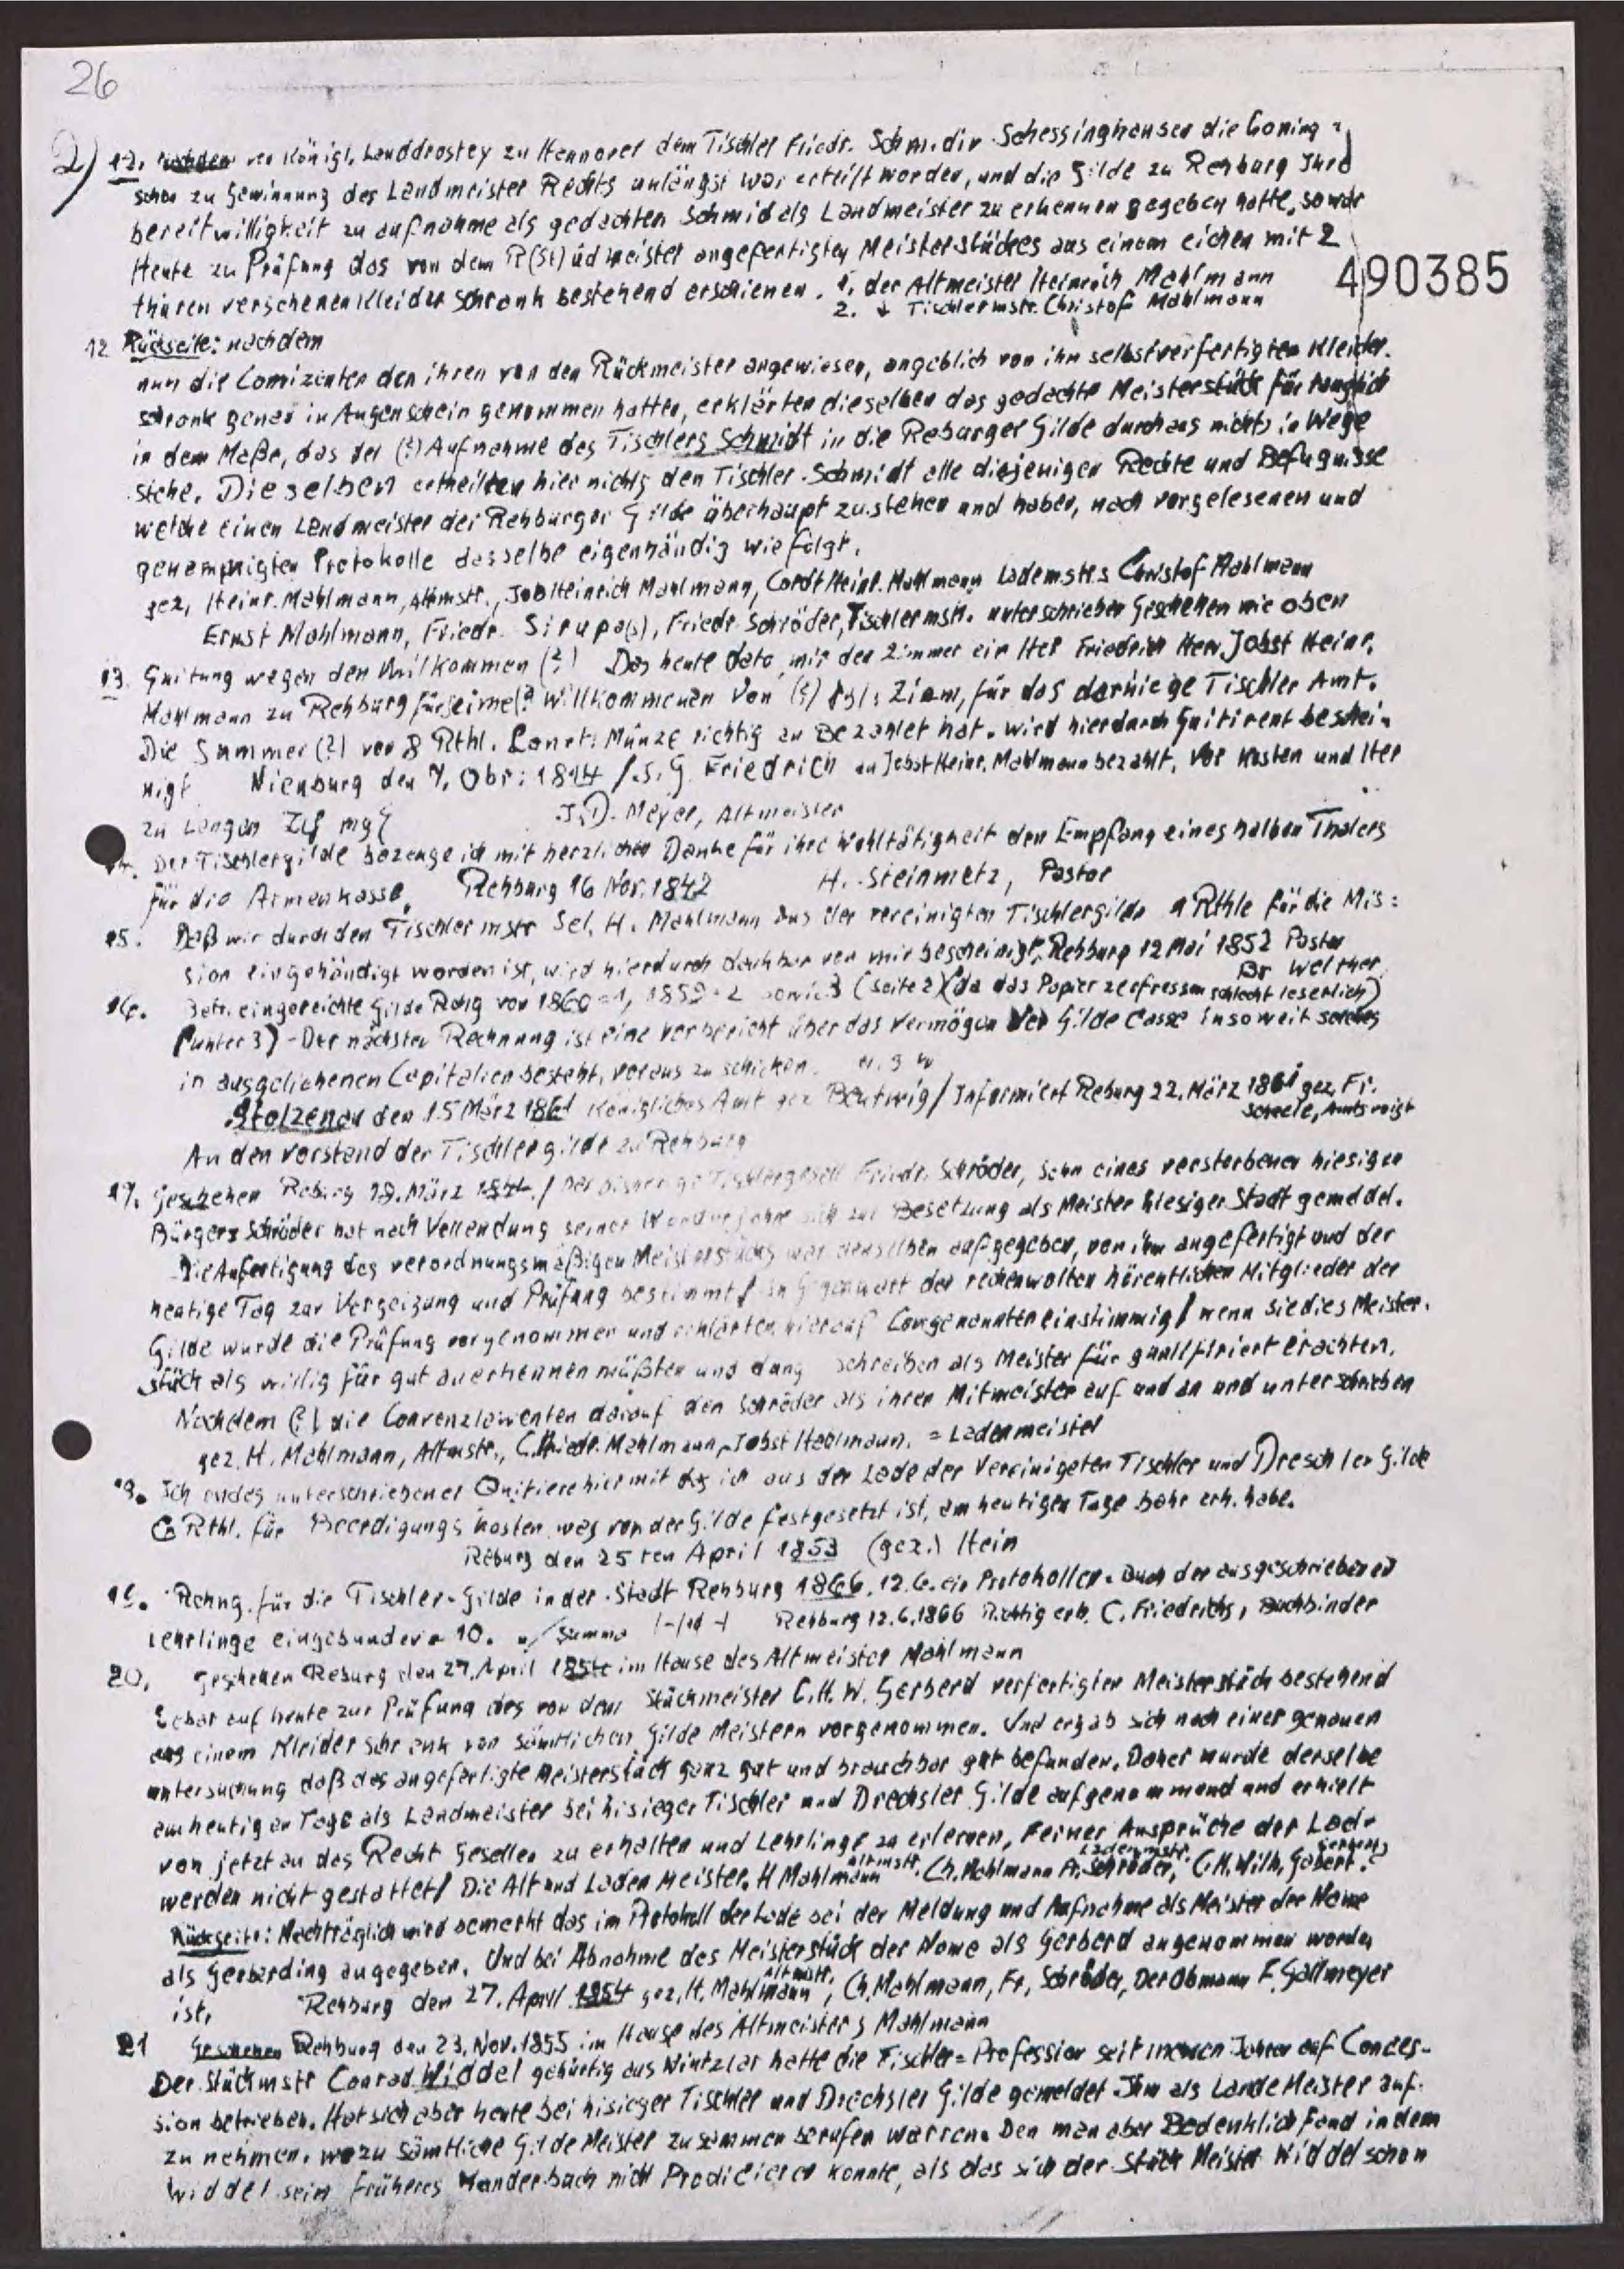 26
2) 12. nachdem von Königl. Landdrostey zu Hannover dem Tischler Friedr. Schmid in Schessinghausen die Coning
schon zu Gewinnung des Landmeister Rechts unlängst war erteilt worden, und die Gilde zu Rehburg Ihre
bereitwilligkeit zu aufnahme als gedachten Schmid als Landmeister zu erkennen gegeben hatte, so war
Heute zu Prüfung das von dem R(St)üdmeister angefertigten Meisterstückes aus einem eichen mit 2
thüren verschenen Kleider Schrank bestehend erschienen. 1. der Altmeister Heinrich Mahlmann
2. Tischlermstr. Christof Mahlmann
490385
12 Rückseite: nachdem
nun die Comizenten den ihren von den Rückmeister angewiesen, angeblich von ihm selbstverfertigten Kleider.
schrank genau in Augenschein genommen hatten, erklärten dieselben das gedachte Meisterstück für tauglich
in dem Maße, das der (?) Aufnahme des Tischlers Schmidt in die Reburger Gilde durchaus nichts in Wege
stehe. Dieselben ertheilten hier nichts den Tischler Schmidt alle diejenigen Rechte und Befugnisse
welche einen Landmeister der Rehburger Gilde überhaupt zustehen und haben, nach vorgelesenen und
genempnigten Protokolle dasselbe eigenhändig wie folgt.
gez. Heinr. Mahlmann, Altmstr., Job Heinrich Mahlmann, Cordt Heinr. Mahlmann Lademstrs Christof Mahlmann
Ernst Mahlmann, Friedr. Sirupa(s), Friedr. Schröder, Tischlermstr. unterschrieben Geschehen wie oben
13. Quitung wegen den Willkommen (?) Das heute dato mir der Zimmer ein Her Friedrich Herr. Jobst Heinr.
Mahlmann zu Rehburg für seine(? Willkommenen von (?) Zinn, für das darhiege Tischler Amt.
Die Summer (?) von 8 Rthl. Münze richtig an Bezahlet hat. wird hierdurch Quitirent beschei-
nigt Nienburg den 7. Obr: 1814 /. S. G. Friedrich an Jobst Heinr. Mahlmann bezahlt, vor Kosten und Her
zu Langen J.D. Meyer, Altmeister
14. Der Tischlergilde bezeuge ich mit herzlichen Danke für ihre Wohltätigkeit den Empfang eines halben Thalers
für die Armenkasse. Rehburg 16 Nov. 1842 H. Steinmetz, Pastor
15. Daß wir durch den Tischlermstr Sel. H. Mahlmann aus der vereinigten Tischlergilde 1 Rthle für die Mis:
sion eingehändigt worden ist, wird hierdurch dachbar von mir bescheinigt. Rehburg 12 Mai 1852 Pastor
Dr Welther
16. Betr. eingereichte Gilde Rchg von 1860=1, 1859=2 sowie 3 (Seite 2) (da das Papier zerfressen schlecht leserlich)
(unter 3) - Der nächsten Rechnung ist eine vorbericht über das Vermögen der Gilde Casse insoweit solches
in ausgeliehenen Capitalien besteht, voraus zu schicken. u. s. w
Stolzenau den 15 März 1861 Königliches Amt gez Bentwig / Informiert Reburg 22. März 1861 gez. Fr.
Scheele, Amtsvoigt
An den Vorstand der Tischlergilde zu Rehburg
17. Geschehen Reburg 19. März 1844. / Der bisherige Tischlergesell Friedr. Schröder, Sohn eines verstorbenen hiesigen
Bürgers Schröder hat nach Vollendung seiner Wanderjahre sich zur Besetzung als Meister hiesiger Stadt gemeldet.
Die Anfertigung des verordnungsmäßigen Meisterstücks war denselben aufgegeben, von ihm angefertigt und der
heutige Tag zur Vorzeigung und Prüfung bestimmt / in Gegenwart der rechenwolten hörentlichen Mitglieder der
Gilde wurde die Prüfung vorgenommen und erklärten hierauf Congenannter einstimmig / wenn sie dies Meister.
stück als willig für gut anerkennen müßten und dang schreiben als Meister für quallifiziert erachten.
Nachdem (?) die Convenzlowenten darauf den Schröder als ihren Mitmeister auf und an und unterschrieben
gez. H. Mahlmann, Altmstr., C. Friedr. Mahlmann, Jobst Mahlmann. = Ladenmeister
18. Ich endes unterschriebener Quitiere hiermit das ich aus der Lade der Vereinigeten Tischler und Dreschler Gilde
6 Rthl. für Beerdigungs kosten was von der Gilde festgesetzt ist, am heutigen Tage bahr erh. habe.
Reburg den 25ten April 1853 (gez.) Hein
19. Rchng. für die Tischler-Gilde in der Stadt Rehburg 1866. 12.6. ein Protokollen-Buch der ausgeschriebenen
Lehrlinge eingebunden = 10. Summa Rehburg 12.6.1866 Richtig erh. C. Friedrichs, Buchbinder
20. Geschehen Reburg den 27. April 1854 im Hause des Altmeister Mahlmann
Lebat auf heute zur Prüfung des von dem Stückmeister C.H.W. Gerberd verfertigten Meisterstück bestehend
aus einem Kleider schrank von sämtlichen Gilde Meistern vorgenommen. Und ergab sich nach einer genauen
untersuchung daß das angefertigte Meisterstück ganz gut und brauchbar gut befunden. Daher wurde derselbe
am heutigen Tage als Landmeister bei hisieger Tischler und Drechsler Gilde aufgenommend und erhielt
von jetzt an das Recht Gesellen zu erhalten und Lehrlinge zu erlernen, Ferner Ansprüche der Lade
werden nicht gestattet / Die Alt und Laden Meister. H Mahlmann Altmstr. Ch. Mahlmann Fr. Schröder, Ladenmstr. C.H. Wilh. Gabert.
Rückseite: Nachträglich wird bemerkt das im Protokoll der Lade bei der Meldung und Aufnahme als Meister der Name
als Gerberding angegeben. Und bei Abnahme des Meisterstück der Name als Gerberd angenommen worden
ist. Rehburg den 27. April 1854 gez. H. Mahlmann Altmstr., Ch. Mahlmann, Fr. Schröder, Der Obmann F. Gallmeyer
21 Geschehen Rehburg den 23. Nov. 1855 im Hause des Altmeisters Mahlmann
Der Stückmstr Conrad Widdel gebürtig aus Wintzlar hatte die Tischler=Profession seit Jahren auf Conces-
sion betrieben. Hat sich aber heute bei hisieger Tischler und Drechsler Gilde gemeldet Ihm als Lande Meister auf-
zu nehmen. wozu sämtliche Gilde Meister zusammen berufen warren. Den man aber Bedenklich fand in dem
Widdel sein früheres Wanderbuch nicht Prodicieren konnte, als das sich der Stück Meister Widdel schon